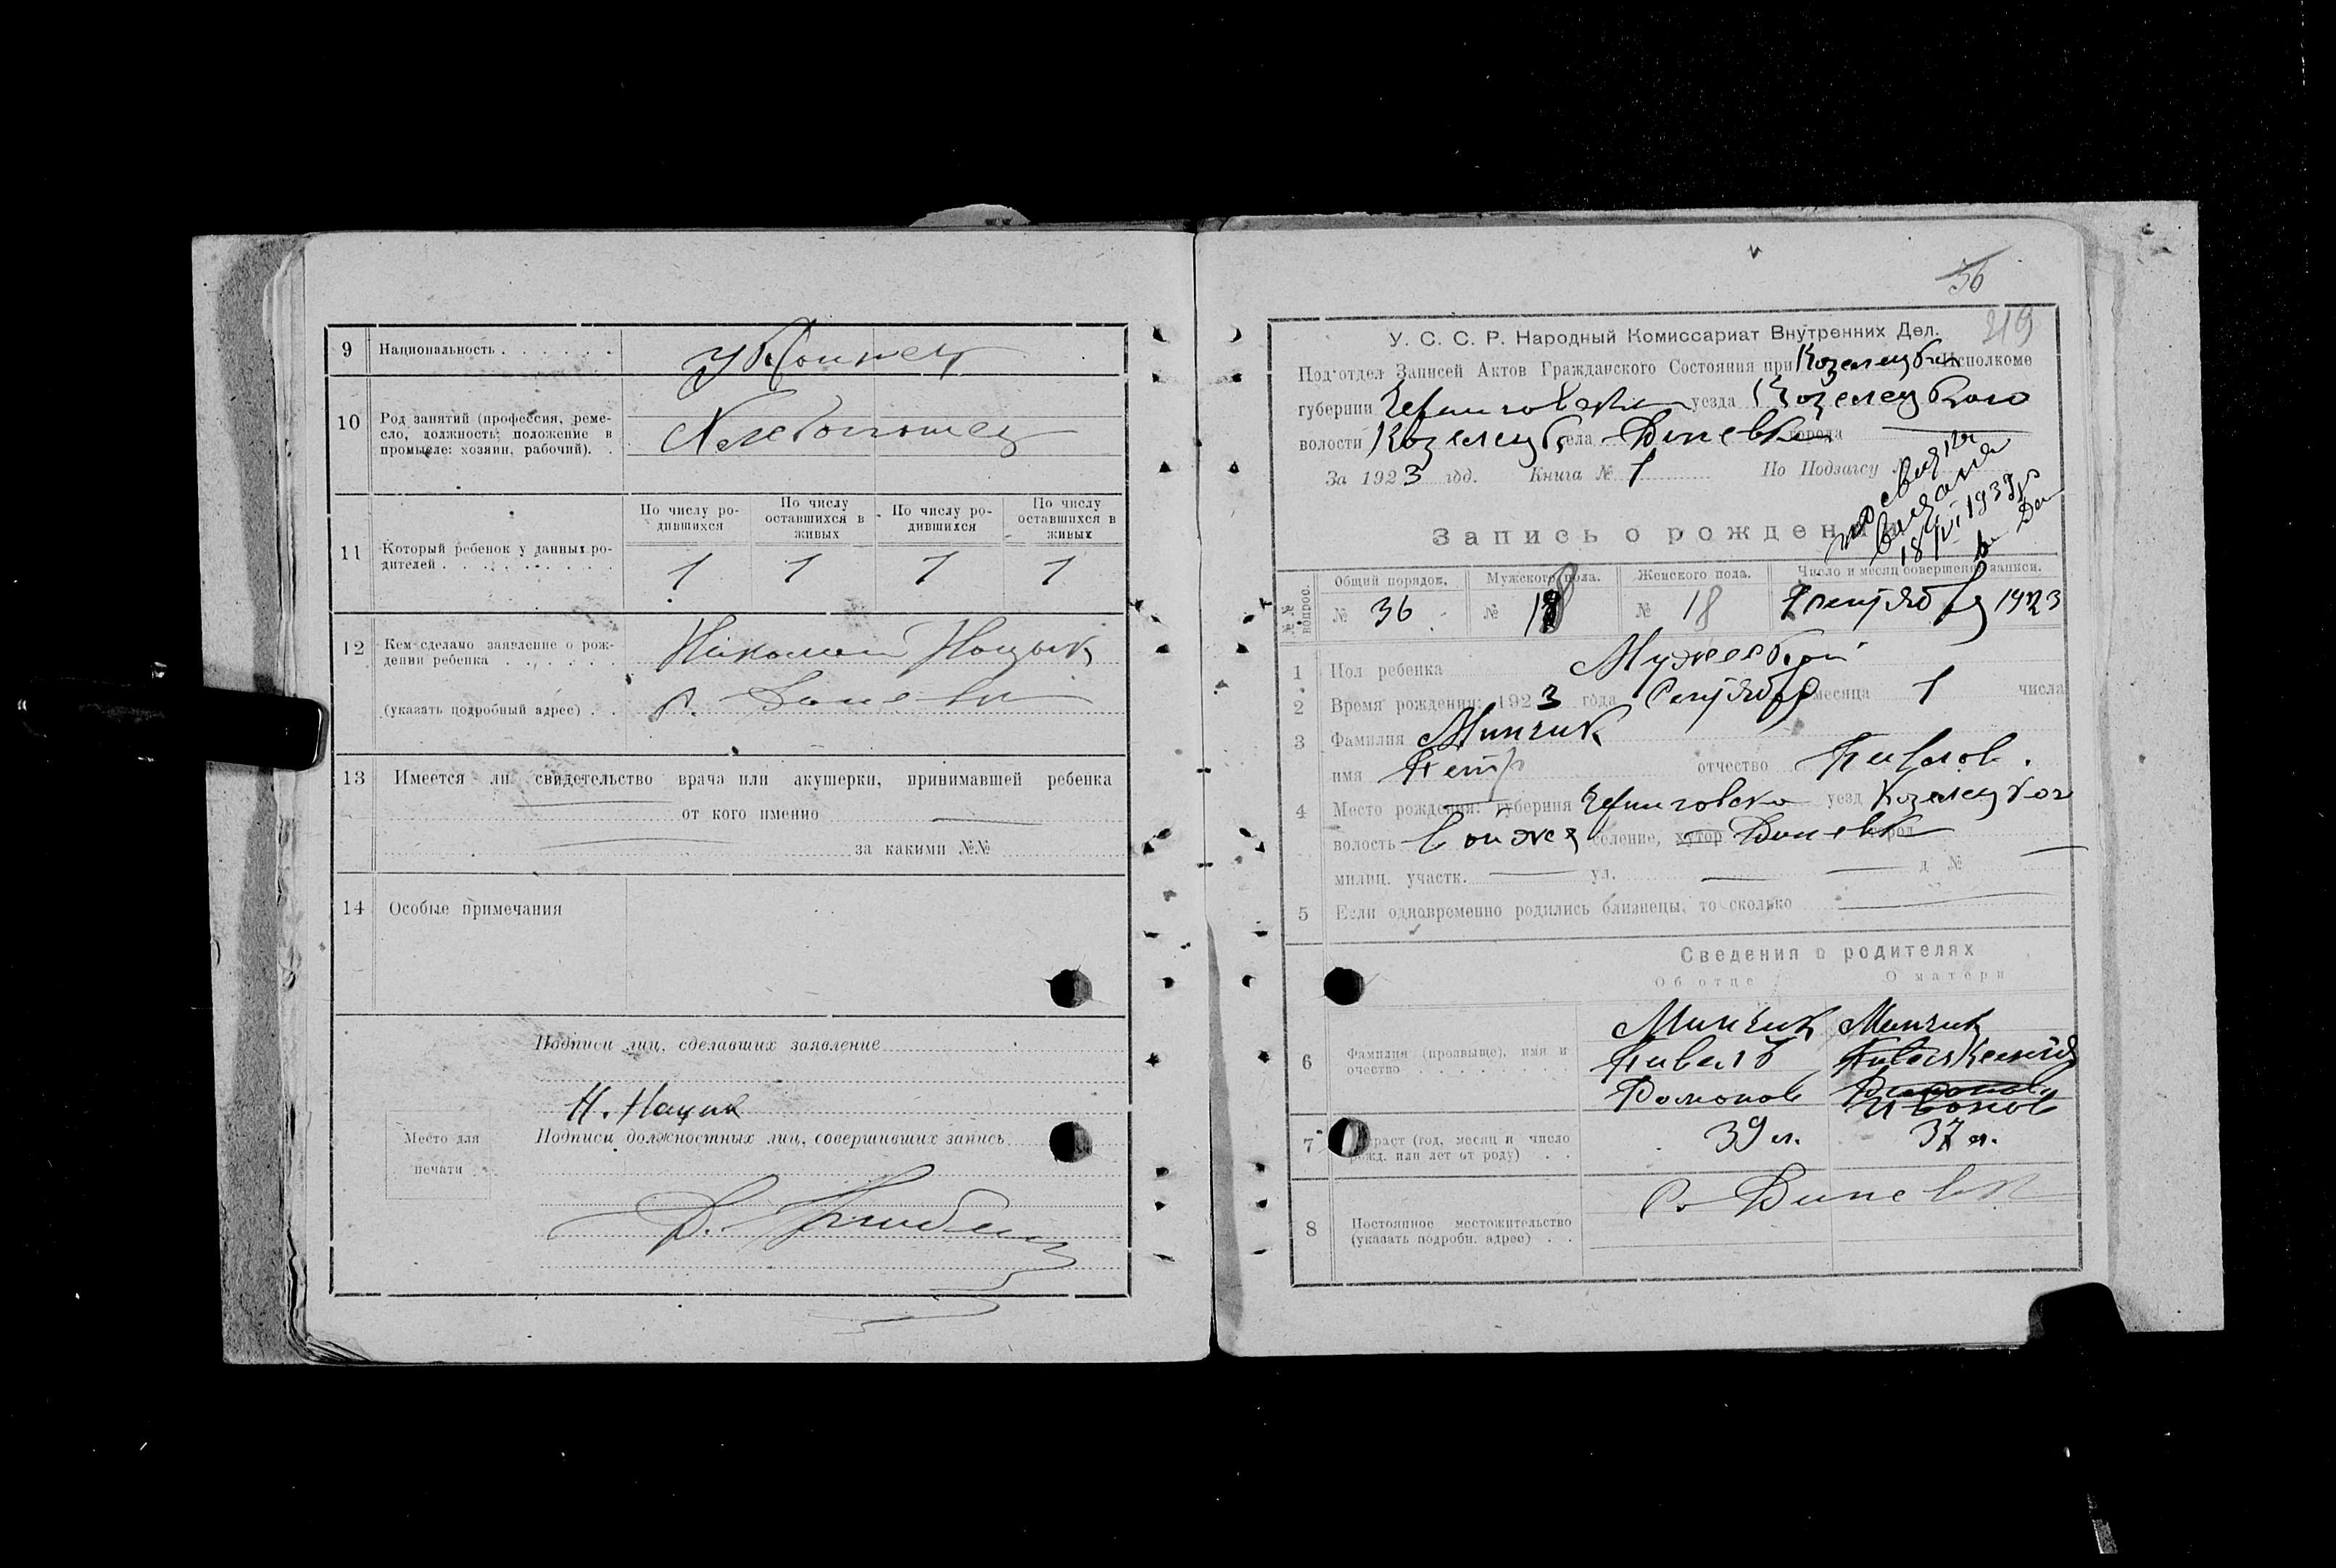 9 Национальность . . . . . .
10 Род занятий (профессия, реме-
сло, должность; положение в
промысле: хозяин, рабочий). .
По числу ро-
дившихся
По числу
оставшихся в
живых
По числу ро-
дившихся
По числу
оставшихся в
живых
11 Который ребенок у данных ро-
дителей . . . . . . . . . .
1 1 1 1
12 Кем сделано заявление о рож-
дении ребенка . . . . . .
Николай Нацык
(указать подробный адрес) . .
13 Имеется ли свидетельство врача или акушерки, принимавшей ребенка
от кого именно
за какими №№
14 Особые примечания
Подписи лиц, сделавших заявление
Н. Нацик
Подписи должностных лиц, совершивших запись
Место для
печати
36
219
У. С. С. Р. Народный Комиссариат Внутренних Дел.
Под‘отдел Записей Актов Гражданского Состояния при Козелецк Исполкоме
губернии Черниговской уезда Козелецкого
волости Козелецк села Даневка города
За 1923 год. Книга № 1 По Подзагсу
Запись о рождении
18/VI 1939
№№ вопрос.
Общий порядок. Мужского пола. Женского пола. Число и месяц совершения записи.
№ 36 № 18 № 18 Сентября 1923
1 Пол ребенка Мужеский
2 Время рождения: 1923 года Сентября месяца 1 числа
3 Фамилия Минчик
имя Петр отчество Павлов.
4 Место рождения: губерния Черниговско уезд Козелецког
волость селение, хутор Даневк город
милиц. участк. ул. д №
5 Если одновременно родились близнецы, то сколько
Сведения о родителях
Об отце О матери
6 Фамилия (прозвыще), имя и
очество . . . . . . . .
Минчик Минчик
Павел
Романов Романов
Иванов
7 Возраст (год, месяц и число
рожд. или лет от роду) . .
39 л. 37 л.
8 Постоянное местожительство
(указать подробн. адрес) . .
с. Даневк